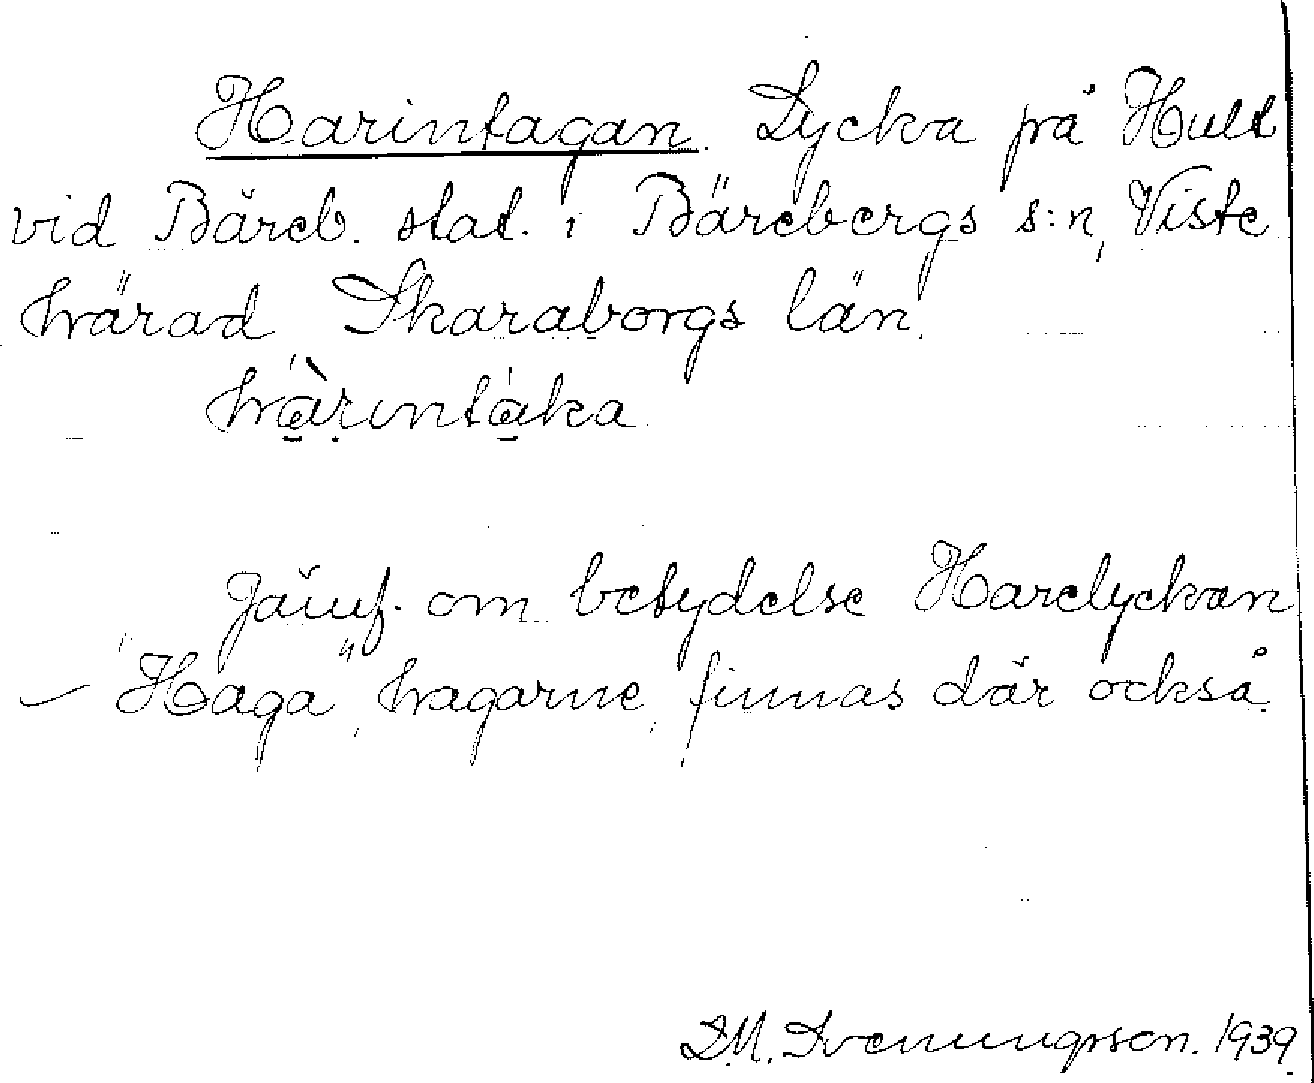 Harintagan. Lycka på Hult
vid Bäreb. stat. i Bärebergs s:n, Viste
härad Skaraborgs län.
hàrıntáka
Jämf. om betydelse Harelyckan
– "Haga", hagarne, finnas där också.
D.M. Svenungsson. 1939.